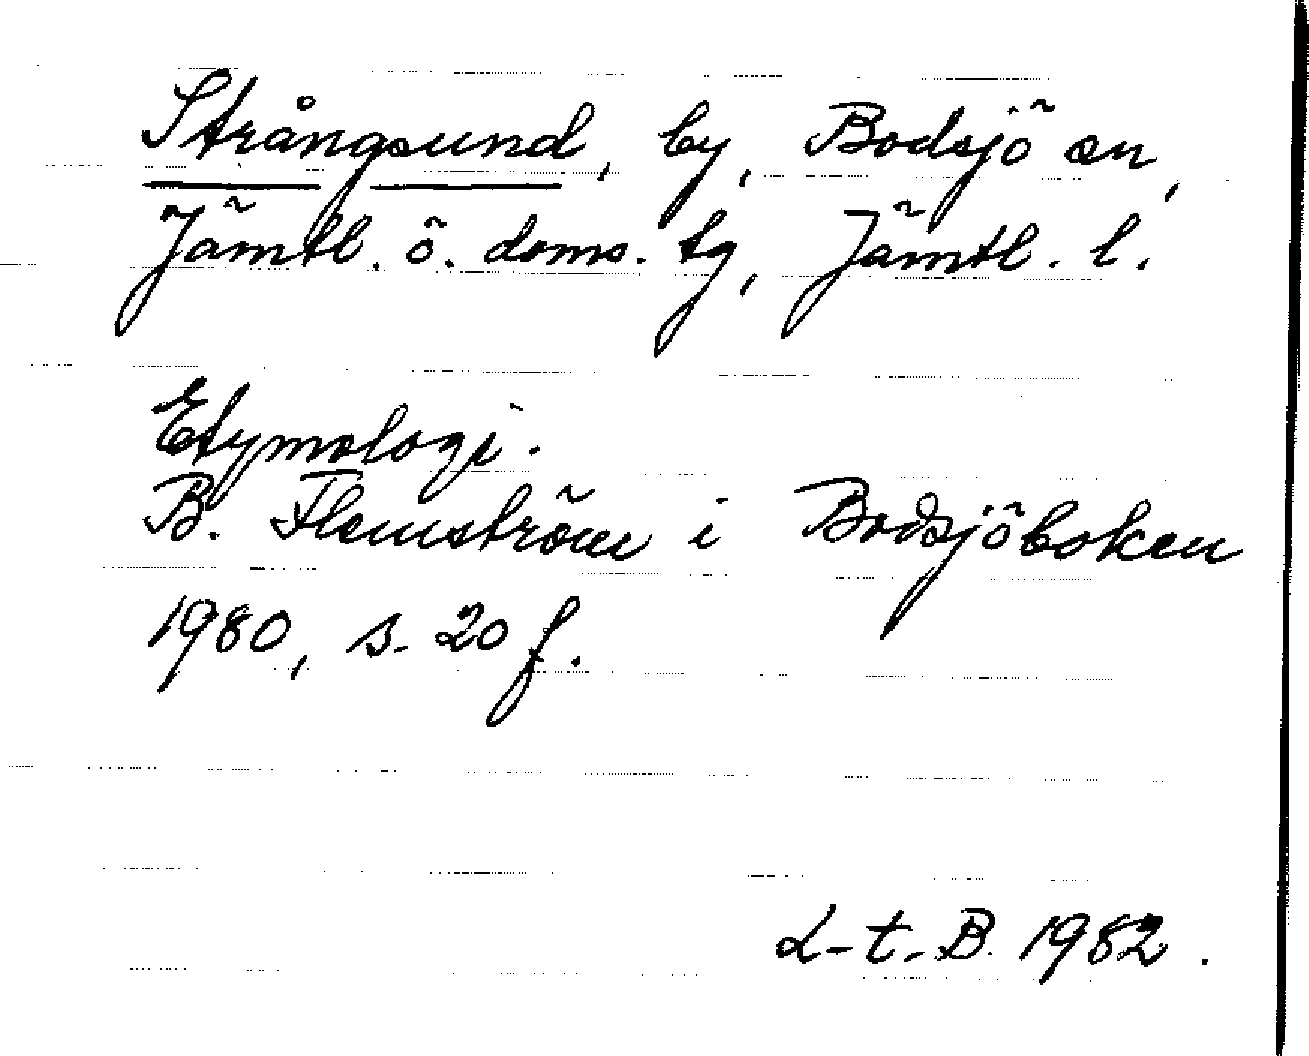 Strångsund, by, Bodsjö sn,
Jämtl. ö. doms. tg, Jämtl. l.
Etymologi.
B. Flemström i Bodsjöboken
1980, s. 20 f.
L-t. B. 1982.